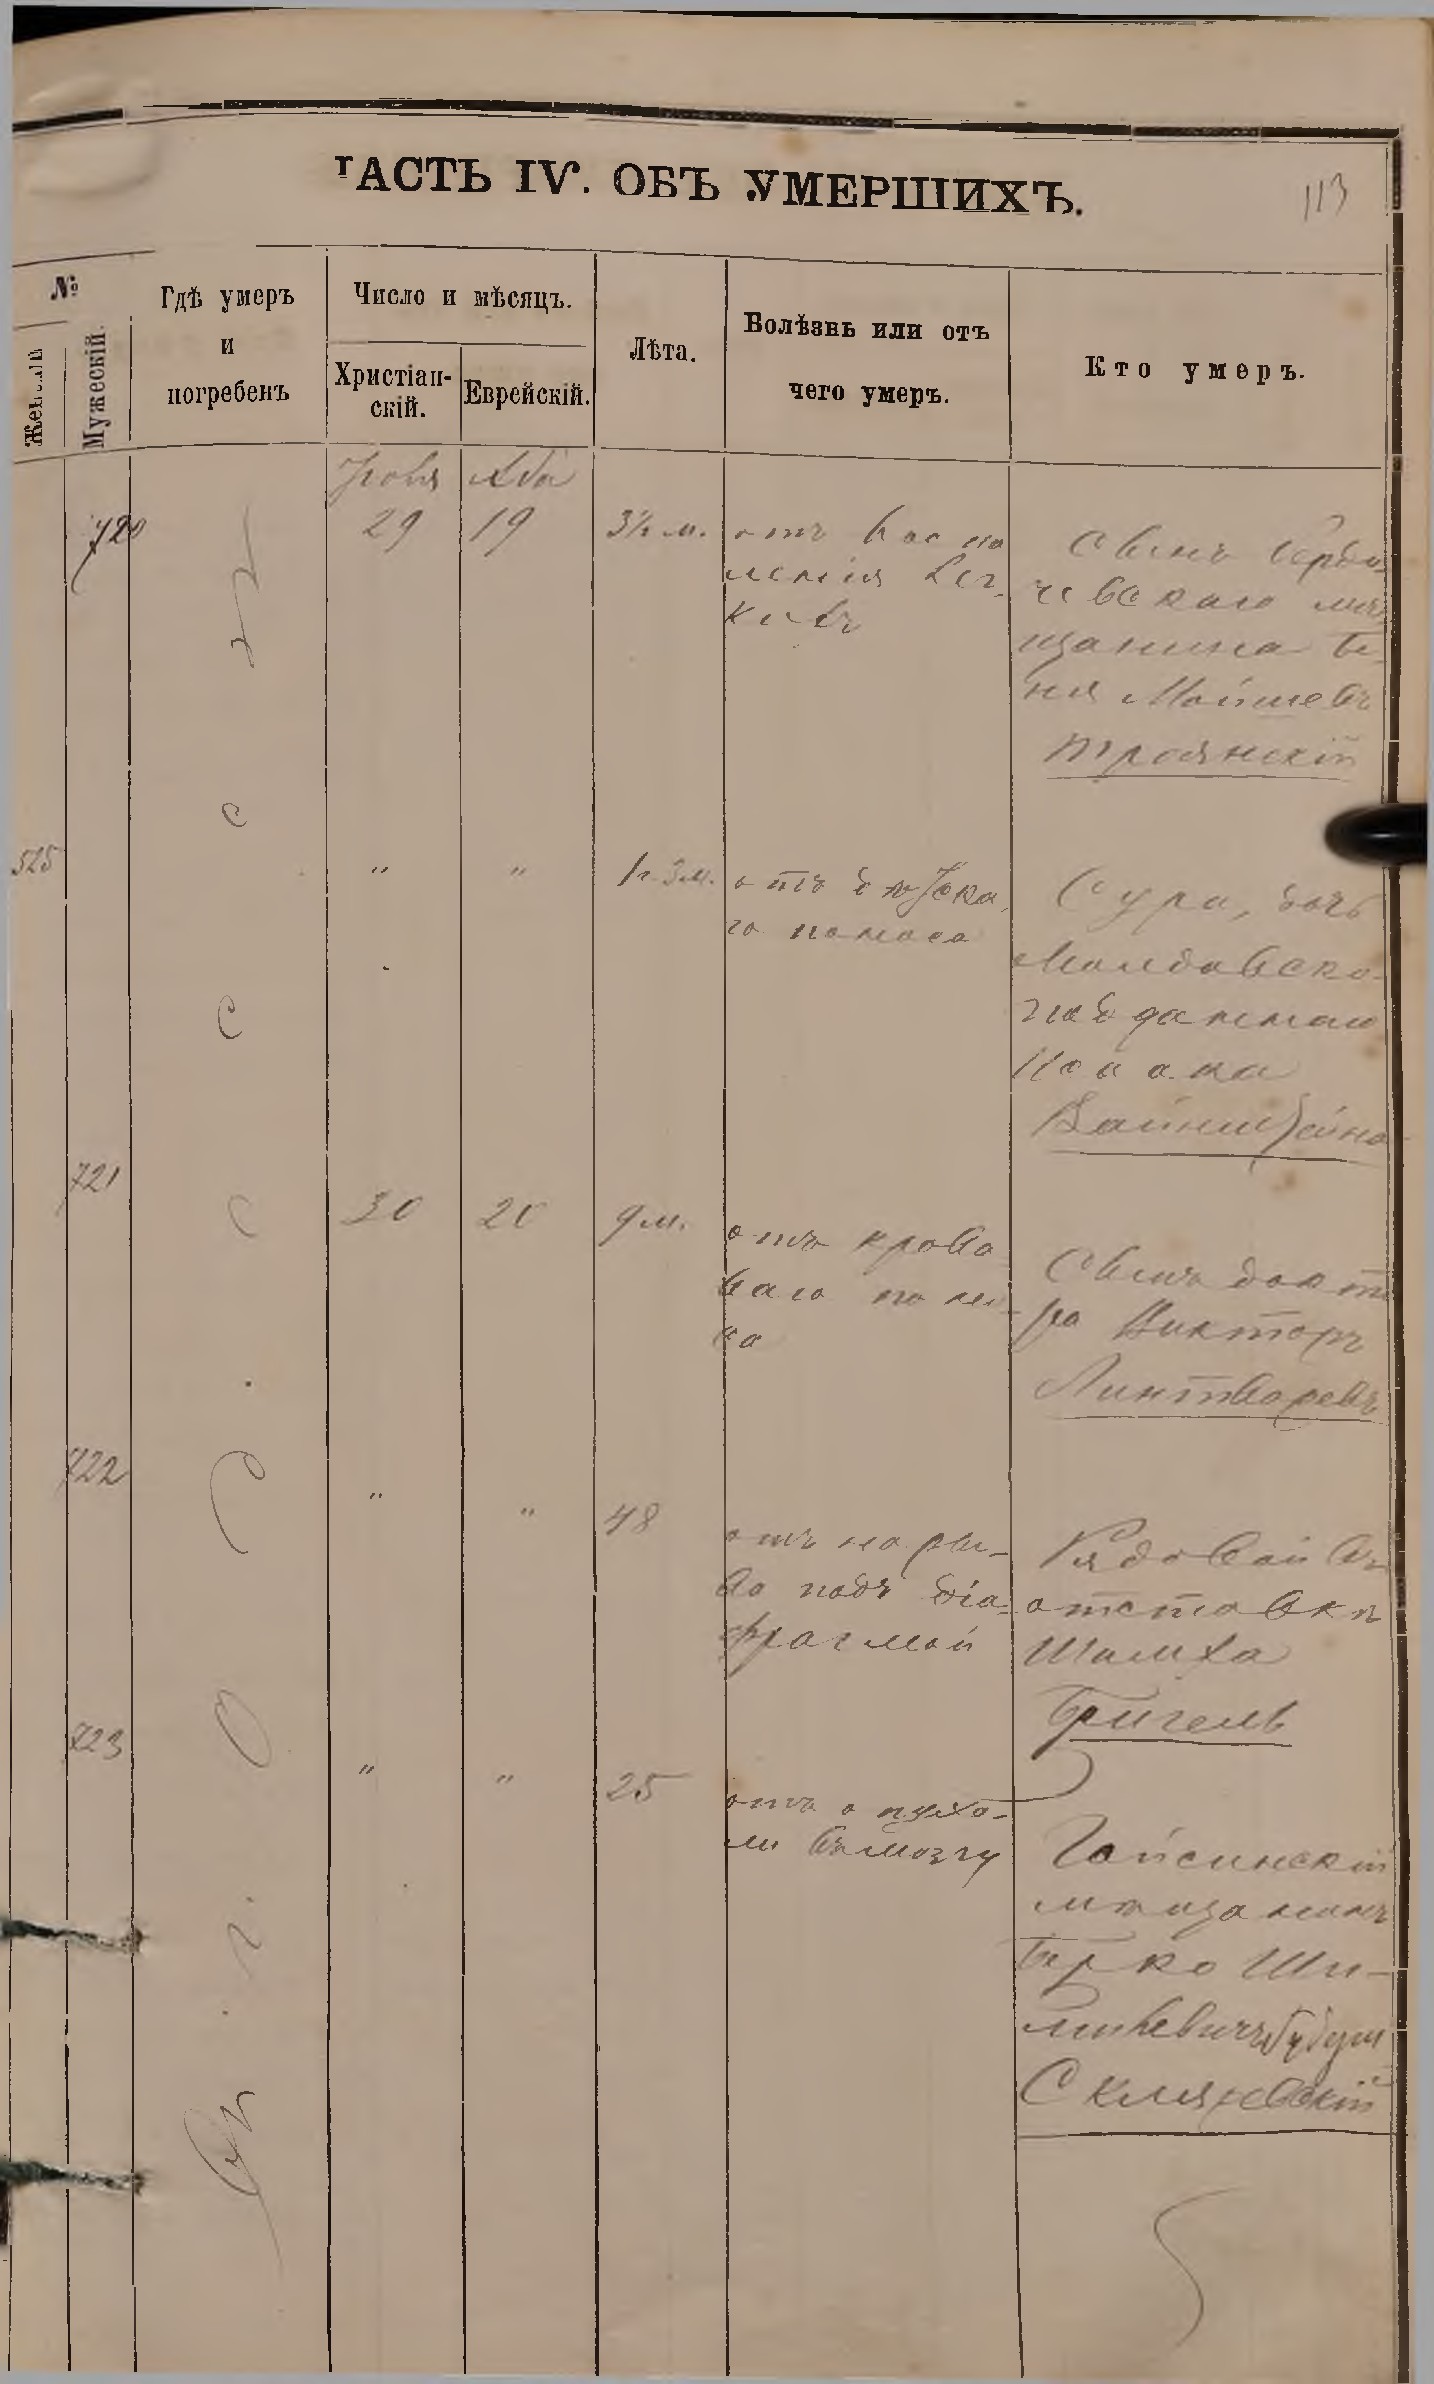 ЧАСТЬ IV. ОБЪ УМЕРШИХЪ.
113
№
Женскій
Мужескій.
Гдѣ умеръ
и
погребенъ
Число и мѣсяцъ.
Христіан-
скій.
Еврейскій.
Лѣта.
Болѣзнь или отъ
чего умеръ.
Кто умеръ.
Аба
720
29
19
3½ м.
отъ воспа
ленія лег
кихъ
Сынъ Берди
чевскаго мѣ
щанина Бе
ня Мойшевъ
Троянскій
525
"
"
1г. 3м.
отъ дѣтска
го поноса
Сура, дочь
Молдавско
подданнаго
Вайнштейна
721
30
20
9 м.
отъ крова
ваго поно-
са
Сынъ докто
ра Викторъ
Линтваревъ
722
"
"
48
отъ нары-
ва подъ діа
фрагмой
Рядовой въ
отставкѣ
Шимха
Бригель
723
"
"
25
отъ опухо-
ли въ мозгу
Гайсинскій
мѣщанинъ
Берко Ши-
Одесса